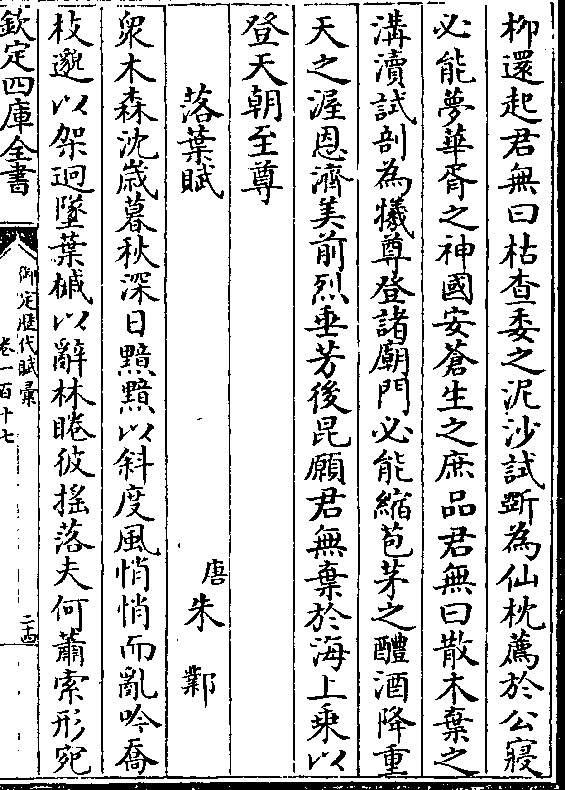 栁還起君無曰枯查委之泥沙試斵為仙枕薦於公寢
必能夢華胥之神國安蒼生之庶品君無曰散木棄之
溝瀆試剖為犧尊登諸廟門必能縮苞茅之醴酒降重
天之渥恩濟美前烈垂芳後昆願君無棄於海上乘以
登天朝至尊
落葉賦
唐朱鄴
衆木森沈歳暮秋深日黯黯以斜度風悄悄而亂吟喬
枝邈以架迥墜葉槭以辭林睠彼搖落夫何蕭索形宛
欽定四庫全書
御定歴代賦彙
卷一百十七
二十四